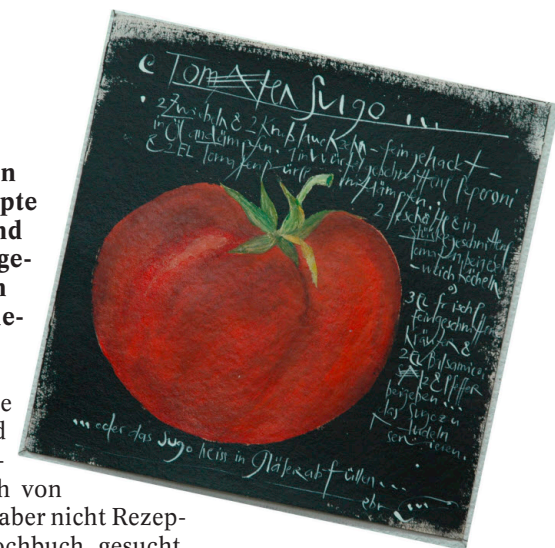 n
pte
nd
ge-
n
ie-
e
d
-
h von
aber nicht Rezep-
ochbuch gesucht
Tomaten Sugo ...
2 Zwiebeln & 2 Knoblauchzehn - feingehackt -
in Öl andämpfen. 1 in Würfel geschnittene Peperoni
& 2 EL Tomatenpürée mitdämpfen...
2 geschälte & in
Stücke geschnittene
Tomaten beigeben
köcheln
3 EL frisch
feingeschnittene
Kräuter &
2 EL Balsamico,
Salz & Pfeffer
beigeben ...
das Sugo zu
Nudeln
servieren.
... oder das Sugo heiss in Gläser abfüllen ...